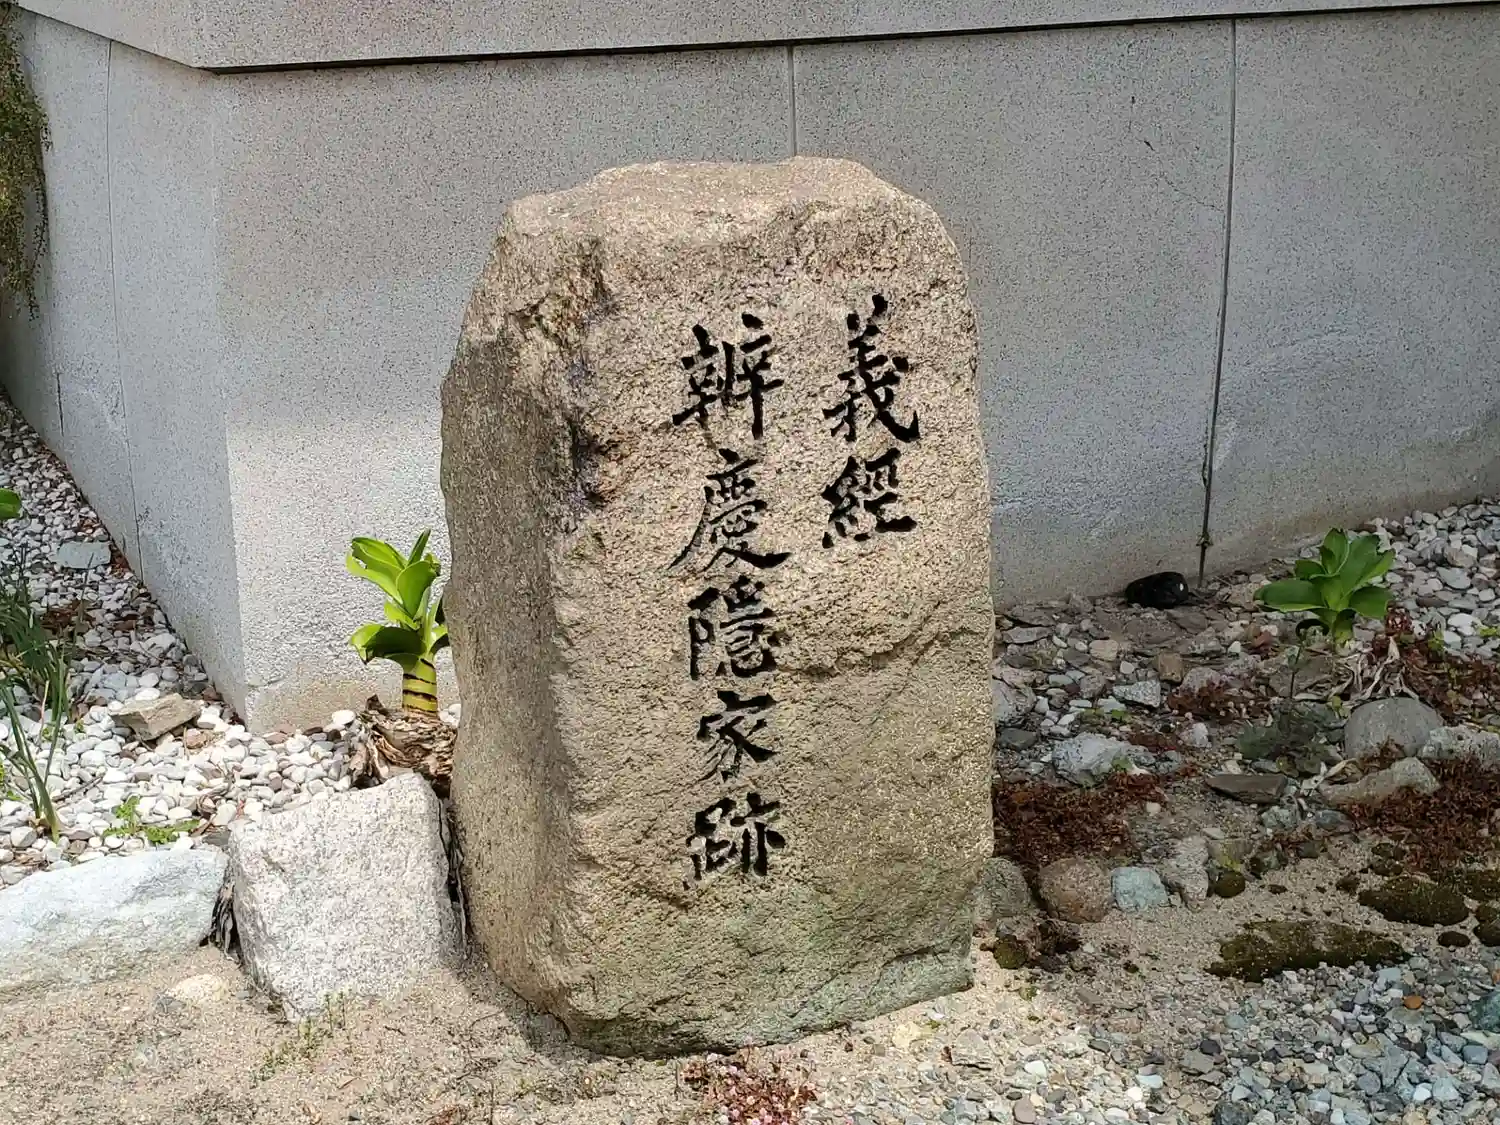 義經
辨慶隱家跡